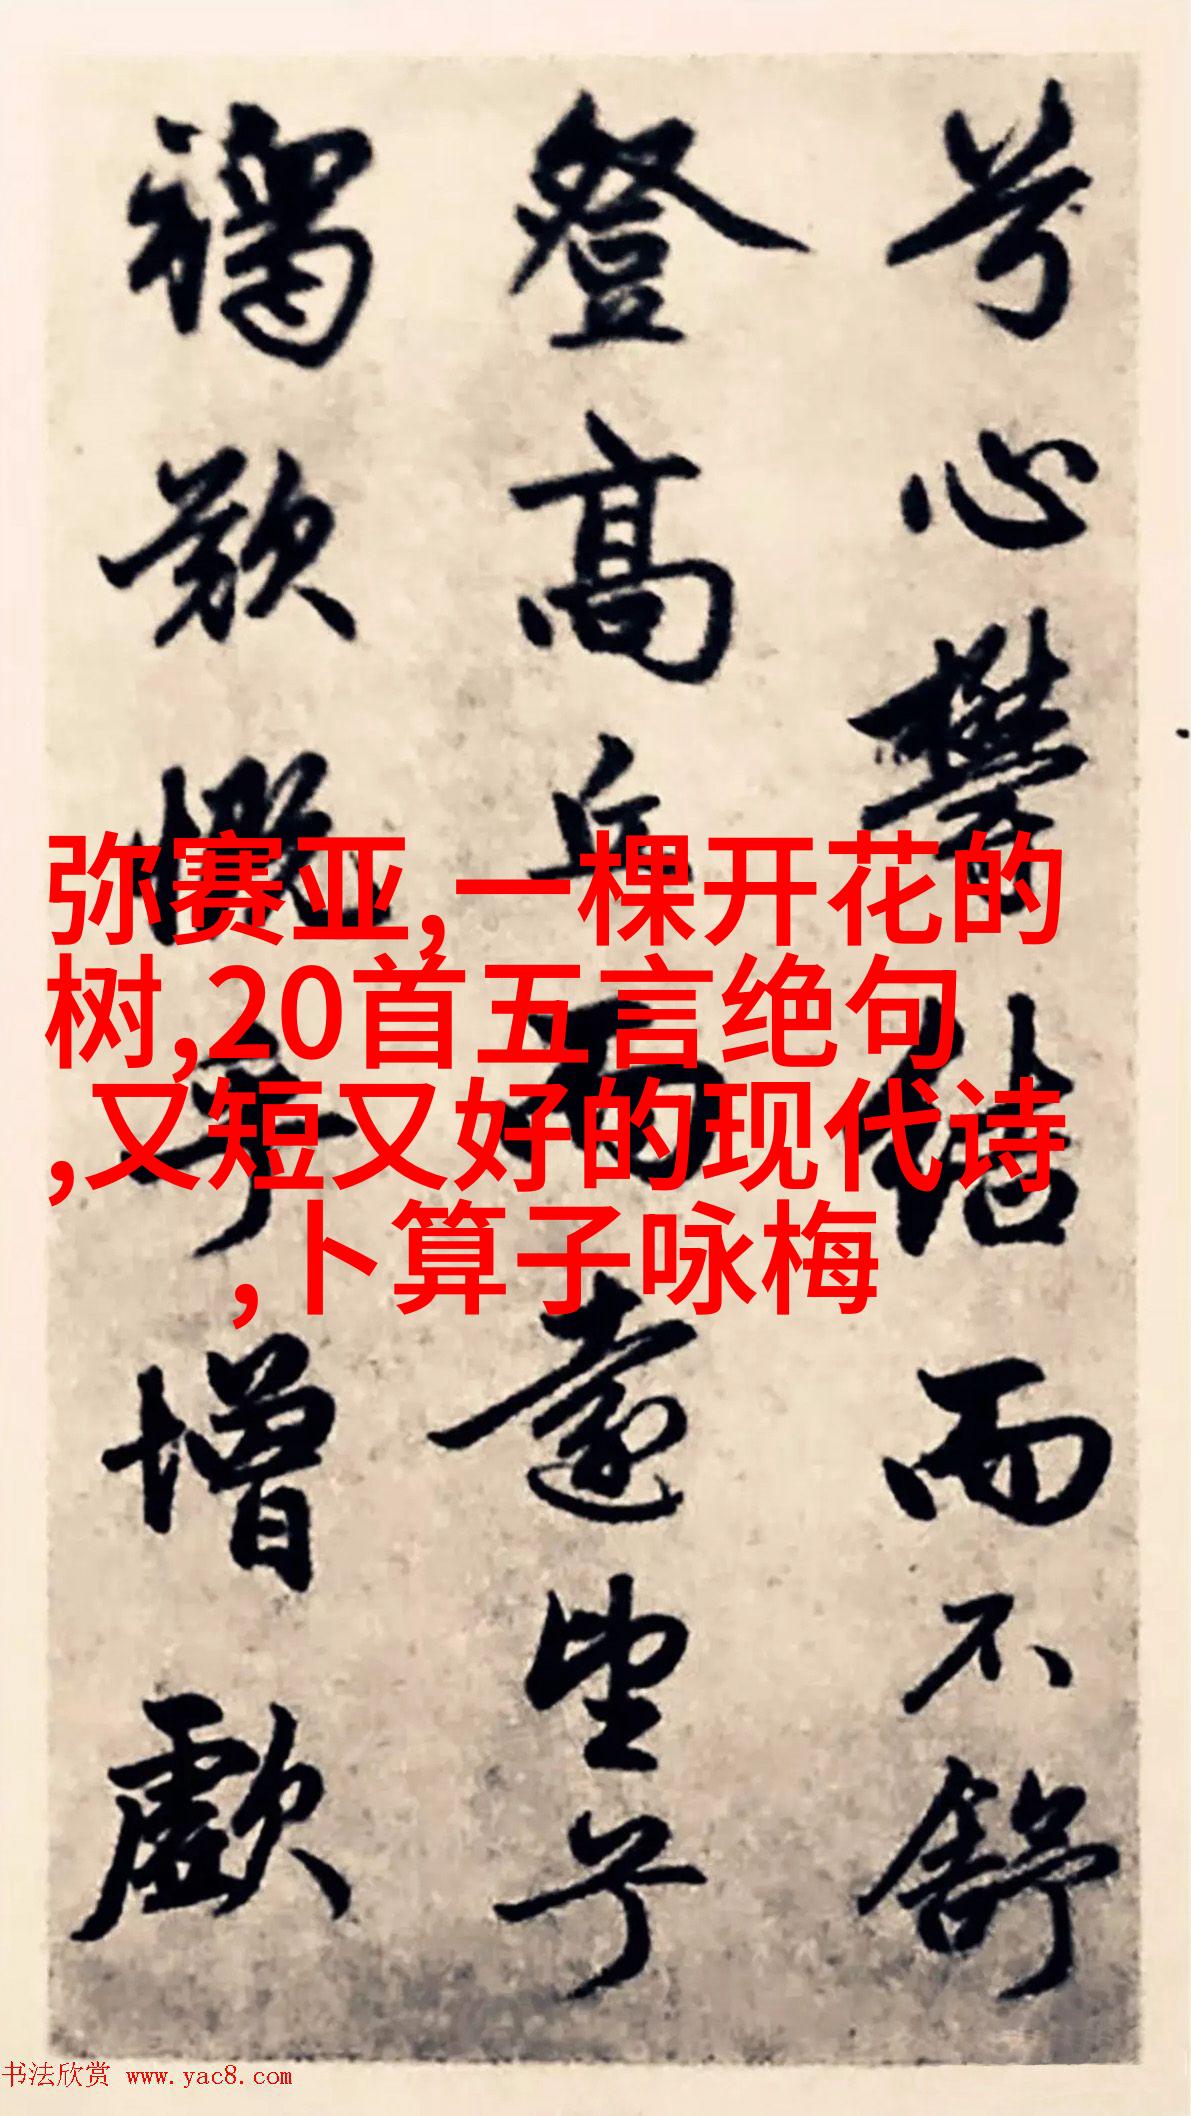 兮心鬱結而不舒
登高丘而遠望兮
歎慨乎增歔
弥赛亚,一棵开花的
树,20首五言绝句
,又短又好的现代诗
,卜算子咏梅
书法欣赏 www.yac8.com